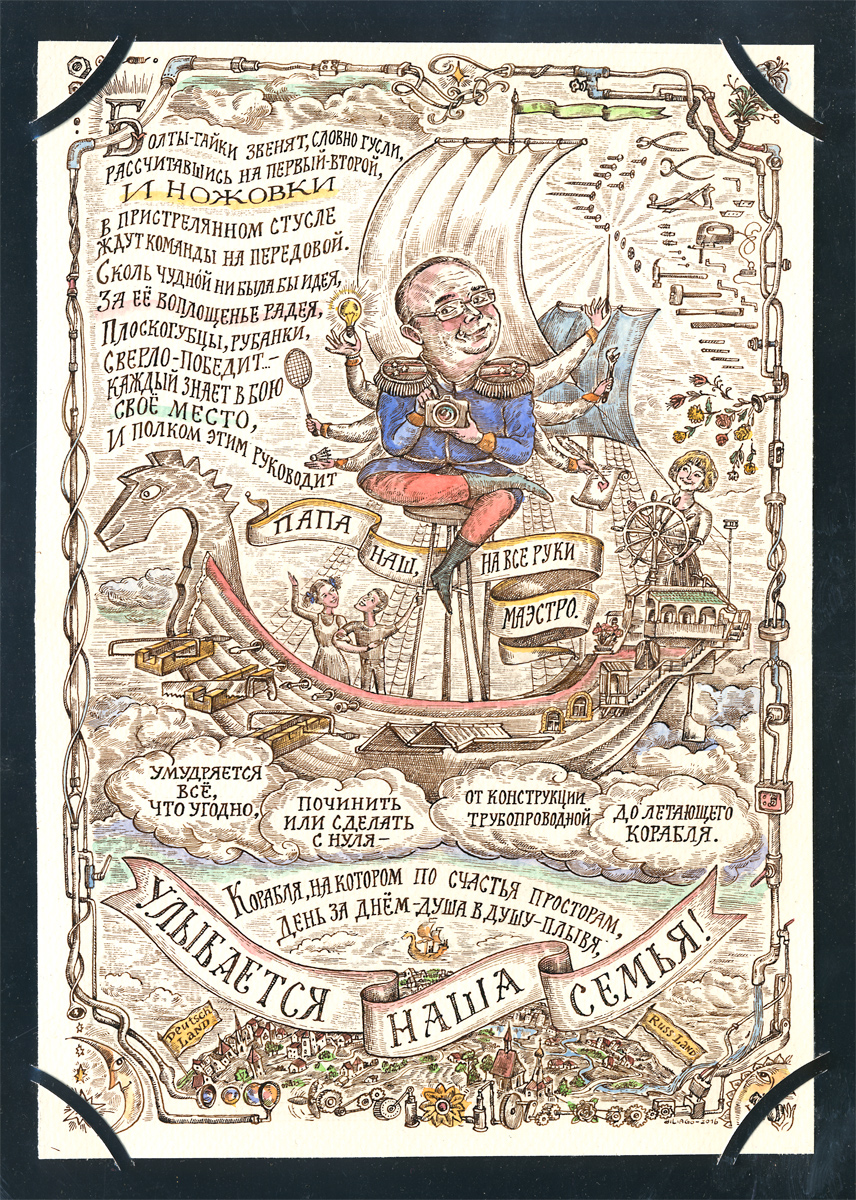 Болты-гайки звенят, словно гусли,
рассчитавшись на первый-второй,
И ножовки
в пристрелянном стусле
ждут команды на передовой.
Сколь чудной ни была бы идея,
за её воплощенье радея,
Плоскогубцы, рубанки,
сверло-победит...-
каждый знает в бою
своё место,
И полком этим руководит
ПАПА
НАШ,
НА ВСЕ РУКИ
МАЭСТРО.
УМУДРЯЕТСЯ
ВСЁ,
ЧТО УГОДНО,
ПОЧИНИТЬ
ИЛИ СДЕЛАТЬ
С НУЛЯ-
ОТ КОНСТРУКЦИИ
ТРУБОПРОВОДНОЙ
ДО ЛЕТАЮЩЕГО
КОРАБЛЯ.
Корабля, на котором по счастья просторам,
День за днём-душа в душу-плывя,
УЛЫБАЕТСЯ
НАША
СЕМЬЯ!
Deutsch
Land
Russ Land